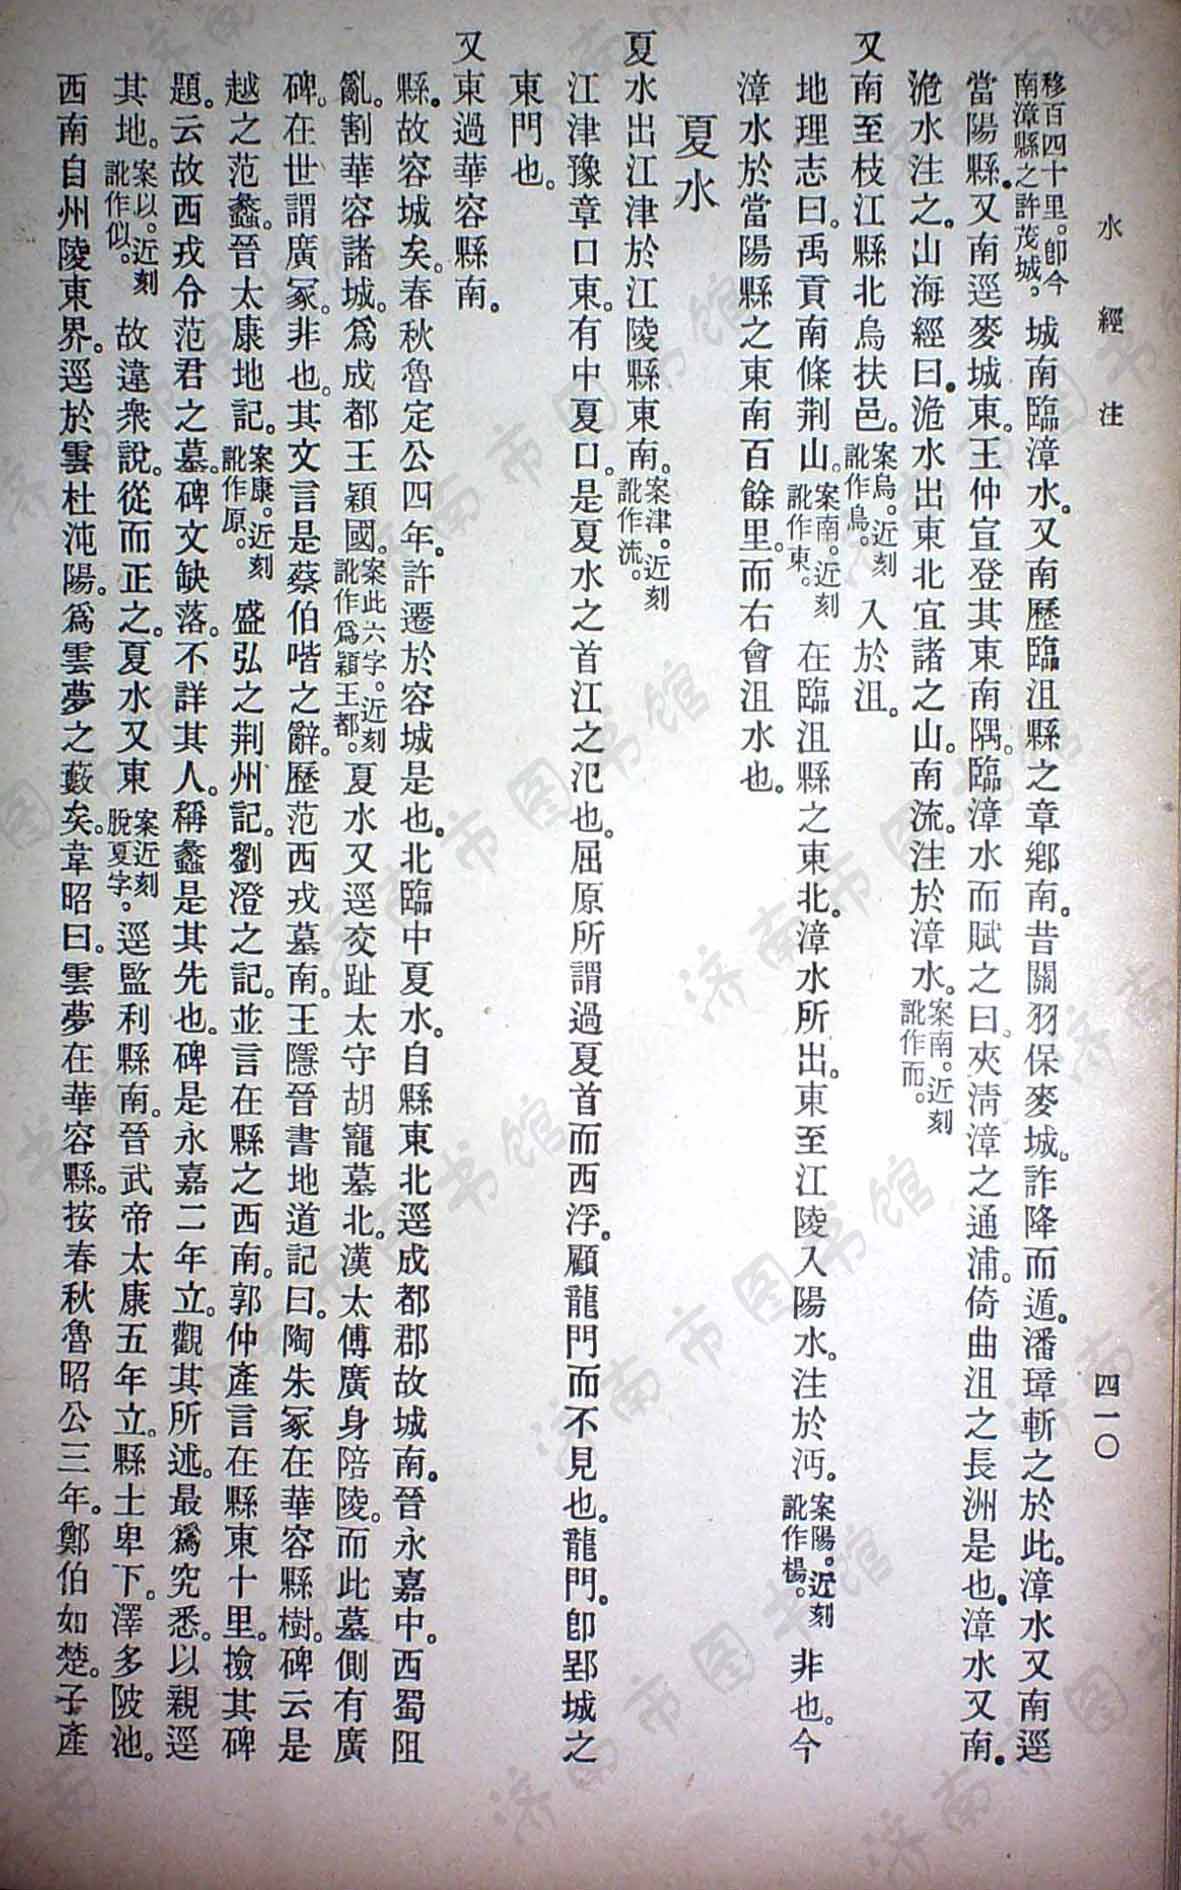 水經注
四一〇
移百四十里。卽今南漳縣之許茂城。城南臨漳水。又南歷臨沮縣之章鄉南。昔關羽保麥城。詐降而遁。潘璋斬之於此。漳水又南逕
當陽縣。又南逕麥城東。王仲宣登其東南隅。臨漳水而賦之曰。夾清漳之通浦。倚曲沮之長洲是也。漳水又南。
洈水注之。山海經曰。洈水出東北宜諸之山。南流。注於漳水。案南。近刻訛作而。
又南至枝江縣北烏扶邑。案烏。近刻訛作鳥。入於沮。
地理志曰。禹貢南條荆山。案南。近刻訛作東。在臨沮縣之東北。漳水所出。東至江陵入陽水。注於沔。案陽。近刻訛作楊。非也。今
漳水於當陽縣之東南百餘里。而右會沮水也。
夏水
夏水出江津於江陵縣東南。案津。近刻訛作流。
江津豫章口東。有中夏口。是夏水之首江之汜也。屈原所謂過夏首而西浮。顧龍門而不見也。龍門。卽郢城之
東門也。
又東過華容縣南。
縣。故容城矣。春秋魯定公四年。許遷於容城是也。北臨中夏水。自縣東北逕成都郡故城南。晉永嘉中。西蜀阻
亂。割華容諸城。爲成都王穎國。案此六字。近刻訛作爲穎王都。夏水又逕交趾太守胡寵墓北。漢太傅廣身陪陵。而此墓側有廣
碑。在世謂廣冢。非也。其文言是蔡伯喈之辭。歷范西戎墓南。王隱晉書地道記曰。陶朱冢在華容縣。樹碑云是
越之范蠡。晉太康地記。案康。近刻訛作原。盛弘之荆州記。劉澄之記。並言在縣之西南。郭仲產言在縣東十里。撿其碑
題。云故西戎令范君之墓。碑文缺落。不詳其人。稱蠡是其先也。碑是永嘉二年立。觀其所述。最爲究悉。以親逕
其地。案以。近刻訛作似。故違衆說。從而正之。夏水又東案近刻脫夏字。逕監利縣南。晉武帝太康五年立。縣士卑下。澤多陂池。
西南自州陵東界。逕於雲杜沌陽。爲雲夢之藪矣。韋昭曰。雲夢在華容縣。按春秋魯昭公三年。鄭伯如楚。子產
济南市图书馆